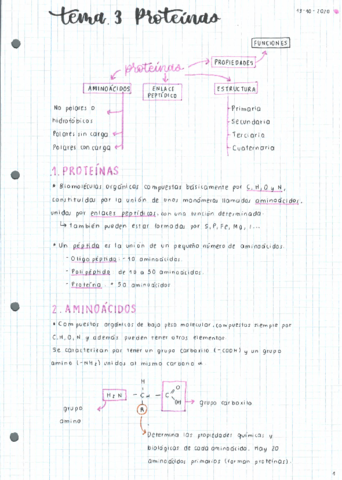 tema 3 Proteínas
FUNCIONES
proteínas
PROPIEDADES
AMINOÁCIDOS
ENLACE
PEPTÍDICO
ESTRUCTURA
No polares o
hidrofóbicos
Polares sin carga
Polares con carga
Primaria
Secundaria
Terciaria
Cuaternaria
1. PROTEÍNAS
* Biomoléculas orgánicas compuestas básicamente por C, H, O y N,
constituidas por la unión de unos monómeros llamados aminoácidos,
unidos por enlaces peptídicos, con una función determinada.
↳ También pueden estar formadas por S, P, Fe, Mg, ...
* Un péptido es la unión de un pequeño número de aminoácidos
- Oligopéptido: <10 aminoácidos.
- Polipéptido: de 10 a 50 aminoácidos.
- Proteína: > 50 aminoácidos
2. AMINOÁCIDOS
* Compuestos orgánicos de bajo peso molecular, compuestos siempre por
C, H, O, N y además pueden tener otros elementos.
Se caracterizan por tener un grupo carboxilo (-COOH) y un grupo
amino (-NH₂) unidos al mismo carbono α.
H
H₂N - C - C O
OH
grupo carboxilo
grupo
amino
R
Determina las propiedades químicas y
biológicas de cada aminoácido. Hay 20
aminoácidos primarios (forman proteínas).